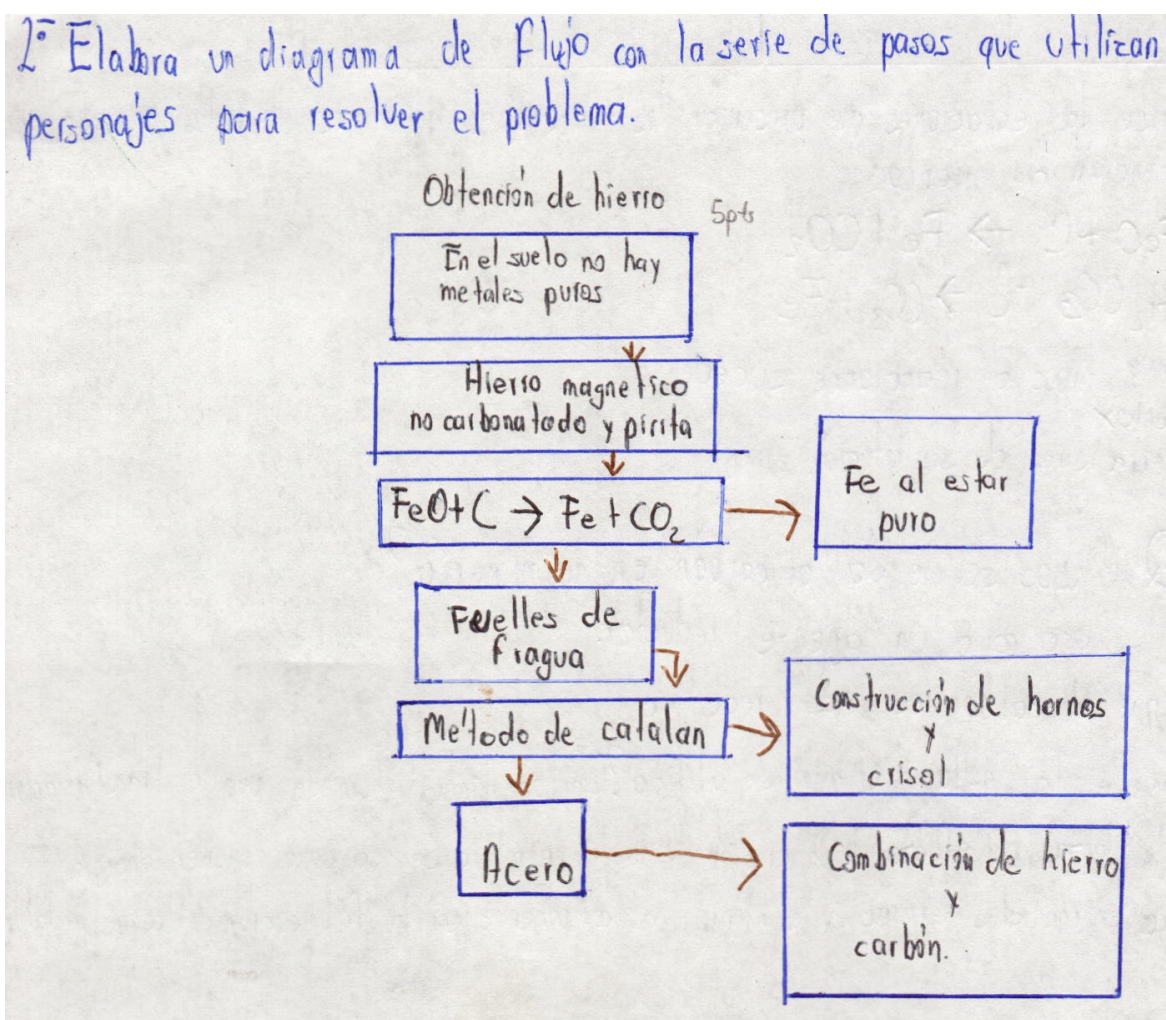 2º Elabora un diagrama de Flujo con la serie de pasos que utilizan
personajes para resolver el problema.
Obtención de hierro
5pts
En el suelo no hay
metales puros
Hierro magnetico
no carbonatado y pirita
FeO+C → Fe + CO₂
Fe al estar
puro
Fuelles de
fragua
Método de catalan
Construcción de hornos
y
crisol
Acero
Combinación de hierro
y
carbón.